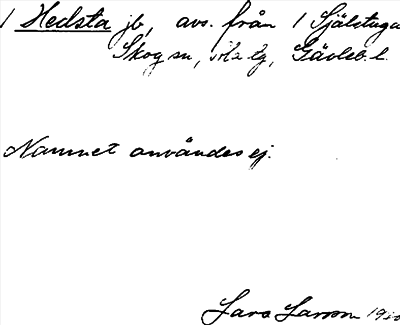 1 Hedsta jb, avs. från 1 Själstuga
Skog sn, Ala tg, Gävleb. l.
Namnet användes ej.
Lars Larsson